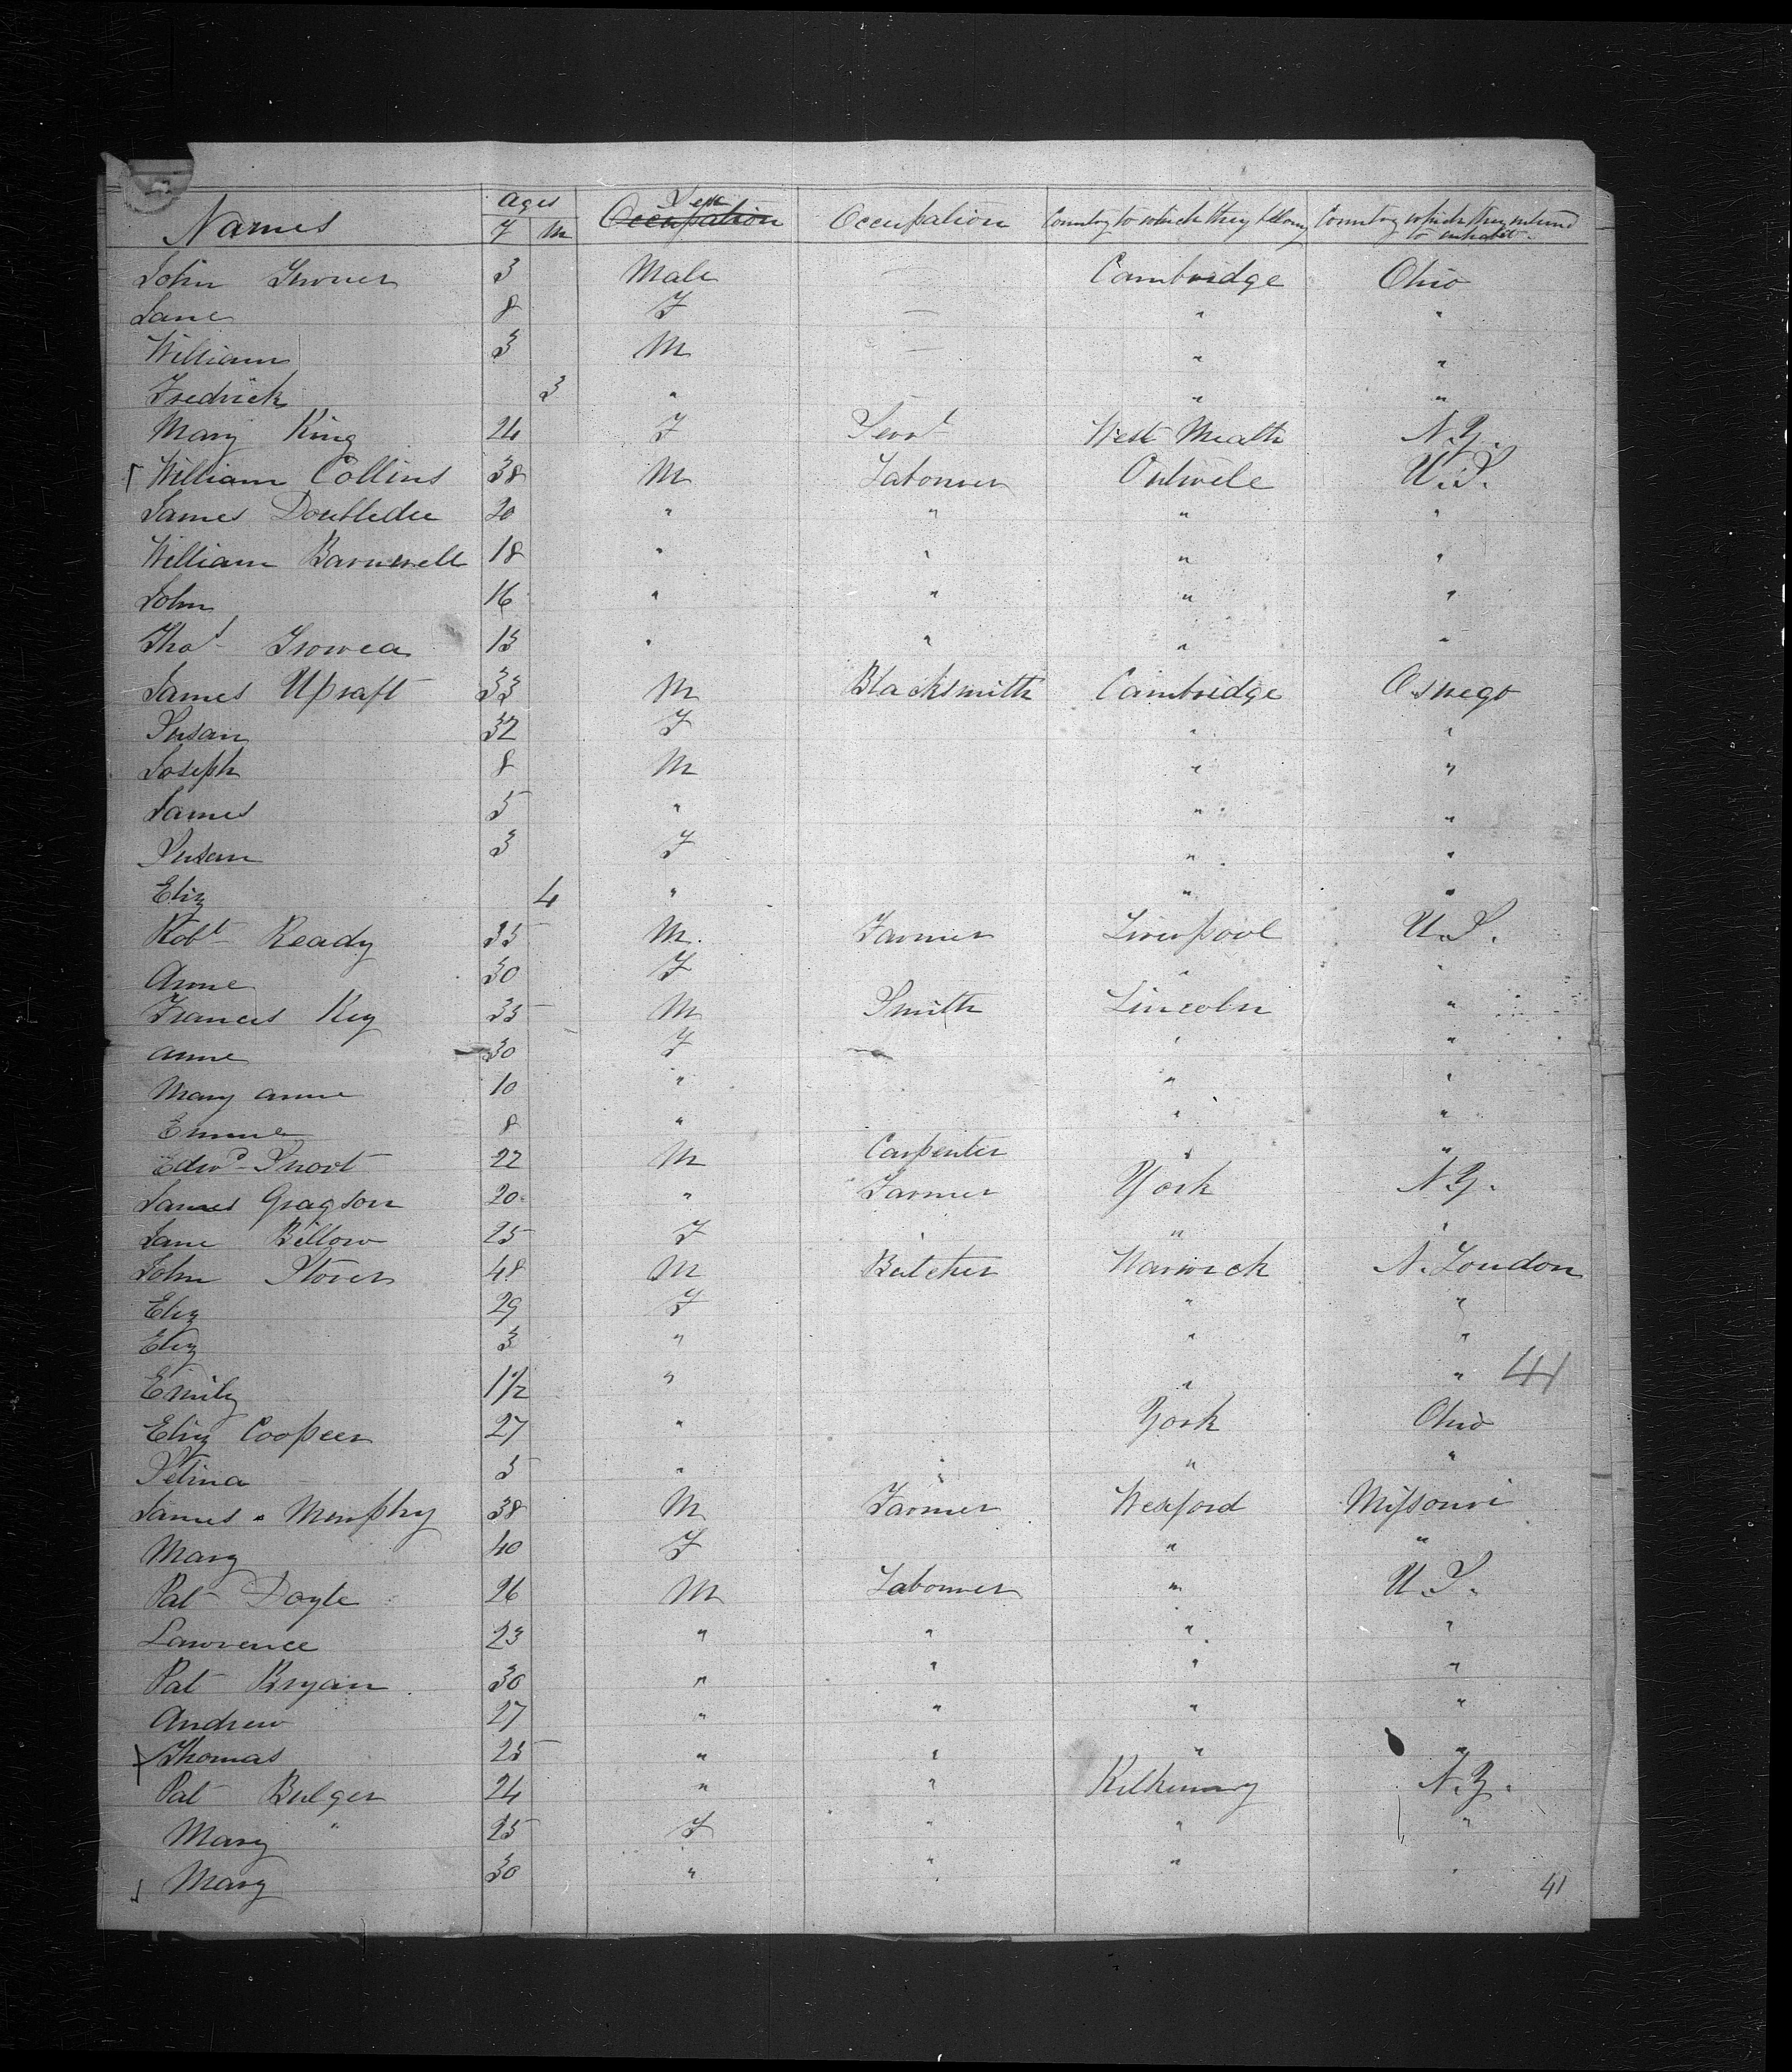 Names Ages Y M Sex Occupation Occupation Country to which they belong Country which they intend to inhabit
John 3 Male — Cambridge Ohio
Jane 8 F — " "
William 3 M — " "
Fredrick 3 " " "
Mary King 24 F Servt West Meath N.Y.
William Collins 38 M Labourer U.S.
James Doubledee 20 " " " "
William Barnwell 18 " " " "
John 16 " " " "
Thos 13 " " " "
James Upraft 33 M Blacksmith Cambridge Oswego
Susan 32 F " "
Joseph 8 M " "
James 5 " " "
Susan 3 F " "
Eliz 4 " " "
Robt Ready 35 M. Farmer Liverpool U.S.
Anne 30 F " "
Frances Key 35 M Smith Lincoln "
Anne 30 F — " "
Mary Anne 10 " " "
8 " " "
Edwd 22 M Carpenter " "
James Gragson 20 " Farmer York N.Y.
Jane Billow 25 F " " "
John Stover 48 M Butcher Warwick N. London
Eliz 29 F " "
Eliz 3 " " "
Emily 1 1/2 " " " 41
Eliz Coopeer 27 " York Ohio
Selina 5 " " " "
James Murphy 38 M Farmer Wexford Missouri
Mary 40 F " "
Pat Doyle 26 M Labourer " U.S.
Lawrence 23 " " " "
Pat Bryan 30 " " " "
Andrew 27 " " " "
Thomas 25 " " " "
Pat Bulger 24 " " Kilkenny N.Y.
Mary " 25 F " " "
Mary 30 " " " "
41